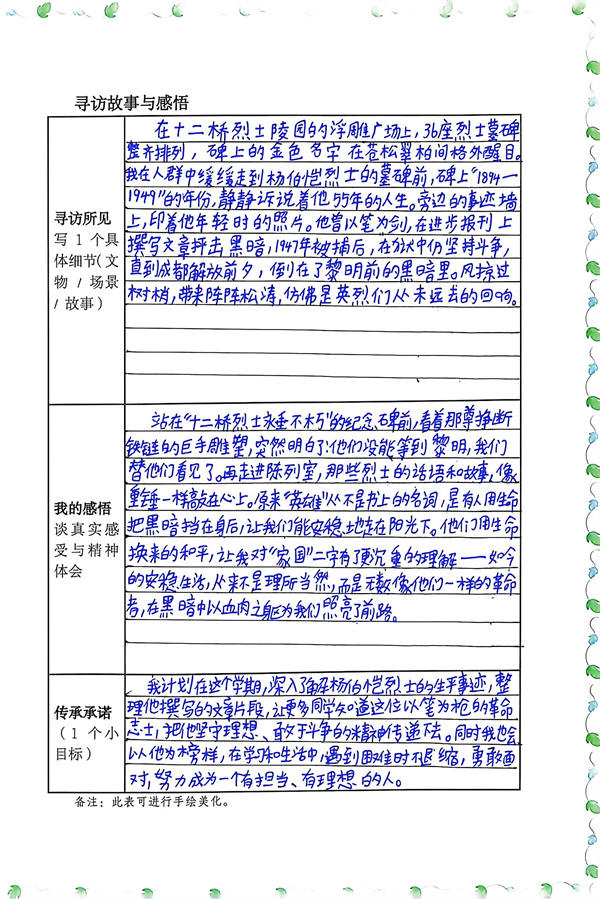 寻访故事与感悟
寻访所见
写 1 个具
体细节(文
物 / 场景
/ 故事)
在十二桥烈士陵园的浮雕广场上,36座烈士墓碑
整齐排列,碑上的金色名字在苍松翠柏间格外醒目。
我在人群中缓缓走到杨伯恺烈士的墓碑前,碑上“1894—
1949”的年份,静静诉说着他55年的人生。旁边的事迹墙
上,印着他年轻时的照片。他曾以笔为剑,在进步报刊上
撰写文章抨击黑暗,1947年被捕后,在狱中仍坚持斗争,
直到成都解放前夕,倒在了黎明前的黑暗里。风掠过
树梢,带来阵阵松涛,仿佛是英烈们从未远去的回响。
我的感悟
谈真实感
受与精神
体会
站在“十二桥烈士永垂不朽”的纪念碑前,看着那尊挣断
铁链的巨手雕塑,突然明白了:他们没能等到黎明,我们
替他们看见了。再走进陈列室,那些烈士的话语和故事,像
重锤一样敲在心上。原来“英雄”从不是书上的名词,是有人用生命
把黑暗挡在身后,让我们能安稳地走在阳光下。他们用生命
换来的和平,让我对“家国”二字有了更沉重的理解——如今
的安稳生活,从来不是理所当然,而是无数像他们一样的革命
者,在黑暗中以血肉之躯为我们照亮了前路。
传承承诺
(1 个小
目标)
我计划在这个学期,深入了解杨伯恺烈士的生平事迹,整
理他撰写的文章片段,让更多同学知道这位以笔为枪的革命
志士,把他坚守理想、敢于斗争的精神传递下去。同时我也会
以他为榜样,在学习和生活中,遇到困难时不退缩,勇敢面
对,努力成为一个有担当、有理想的人。
备注:此表可进行手绘美化。